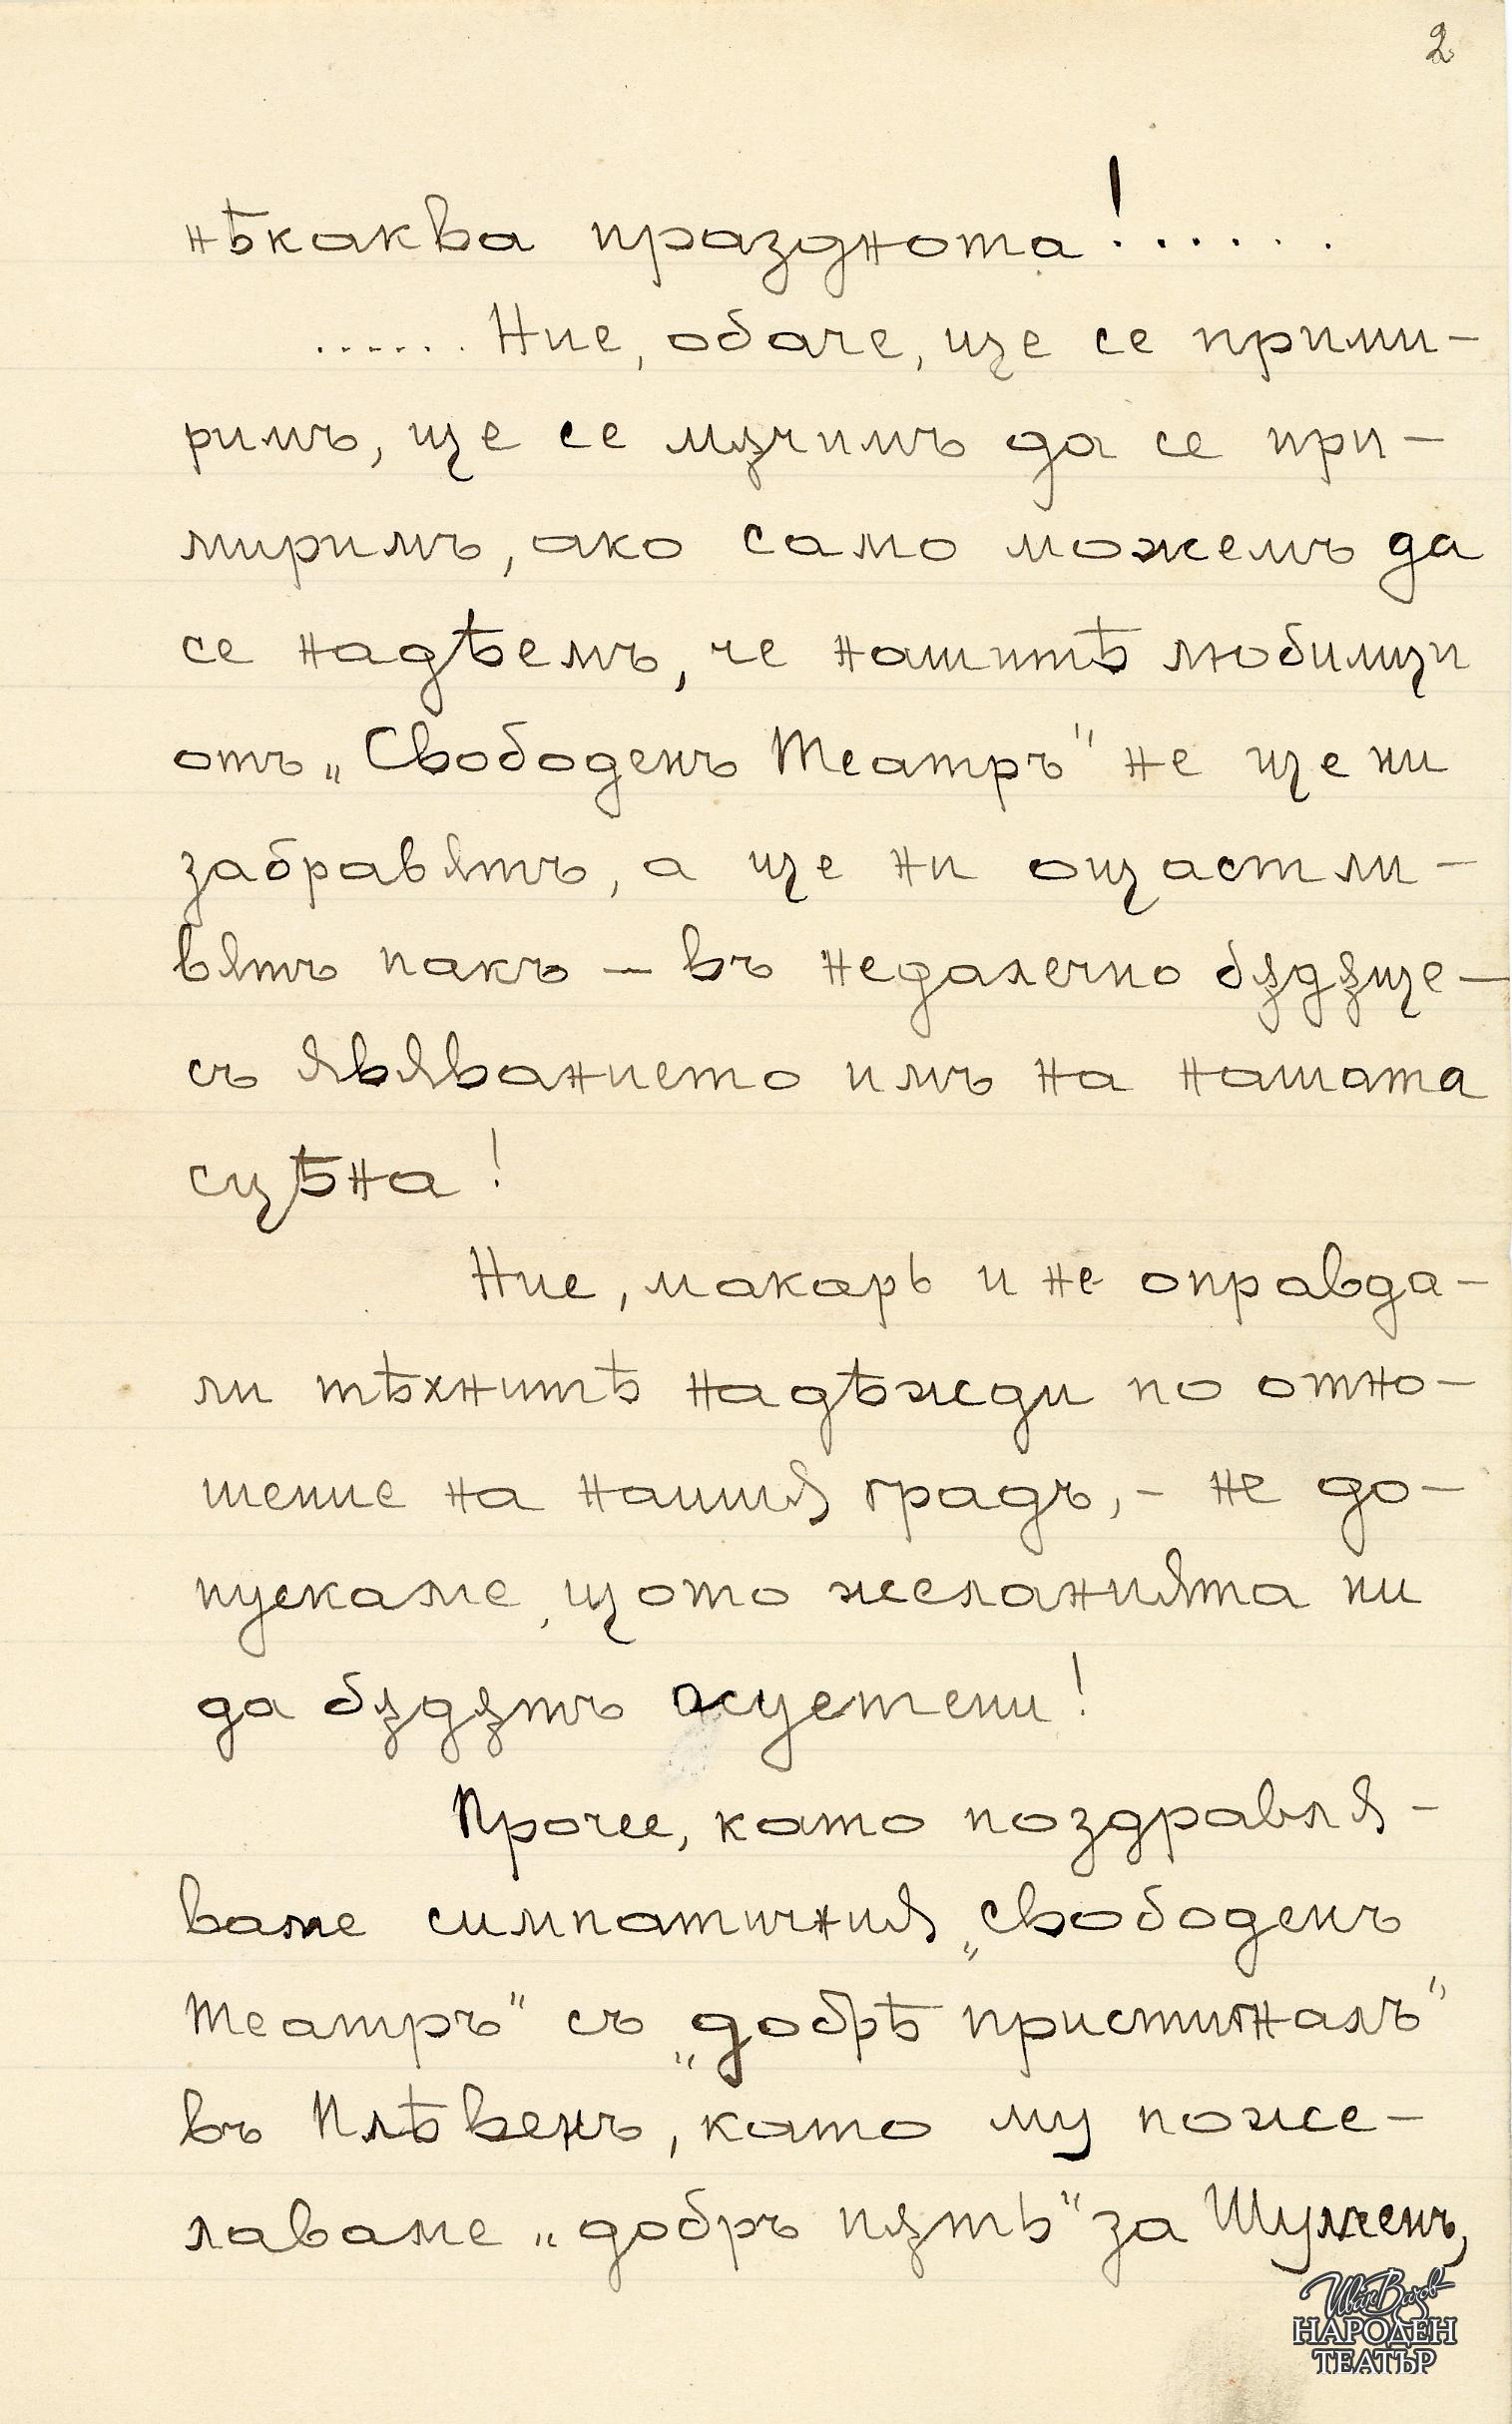 2
нѣкаква празднота!......
...... Ние, обаче, ще се прими-
римъ, ще се мѫчимъ да се при-
миримъ, ако само можемъ да
се надѣемъ, че нашитѣ любимци
отъ „Свободенъ Театръ" не ще ни
забравятъ, а ще ни ощастли-
вятъ пакъ — въ недалечно бѫдѫще —
съ явяванието имъ на нашата
сцѣна!
Ние, макаръ и не оправда-
ли тѣхнитѣ надѣжди по отно-
шение на нашия градъ, - не до-
пускаме, щото желанията ни
да бѫдѫтъ осуетени!
Прочее, като поздравля-
ваме симпатичния „свободенъ
театръ" съ „добрѣ пристигналъ"
въ Плѣвенъ, като му поже-
лаваме „добръ пѫть" за Шуменъ,
Иван Вазов
НАРОДЕН
ТЕАТЪР